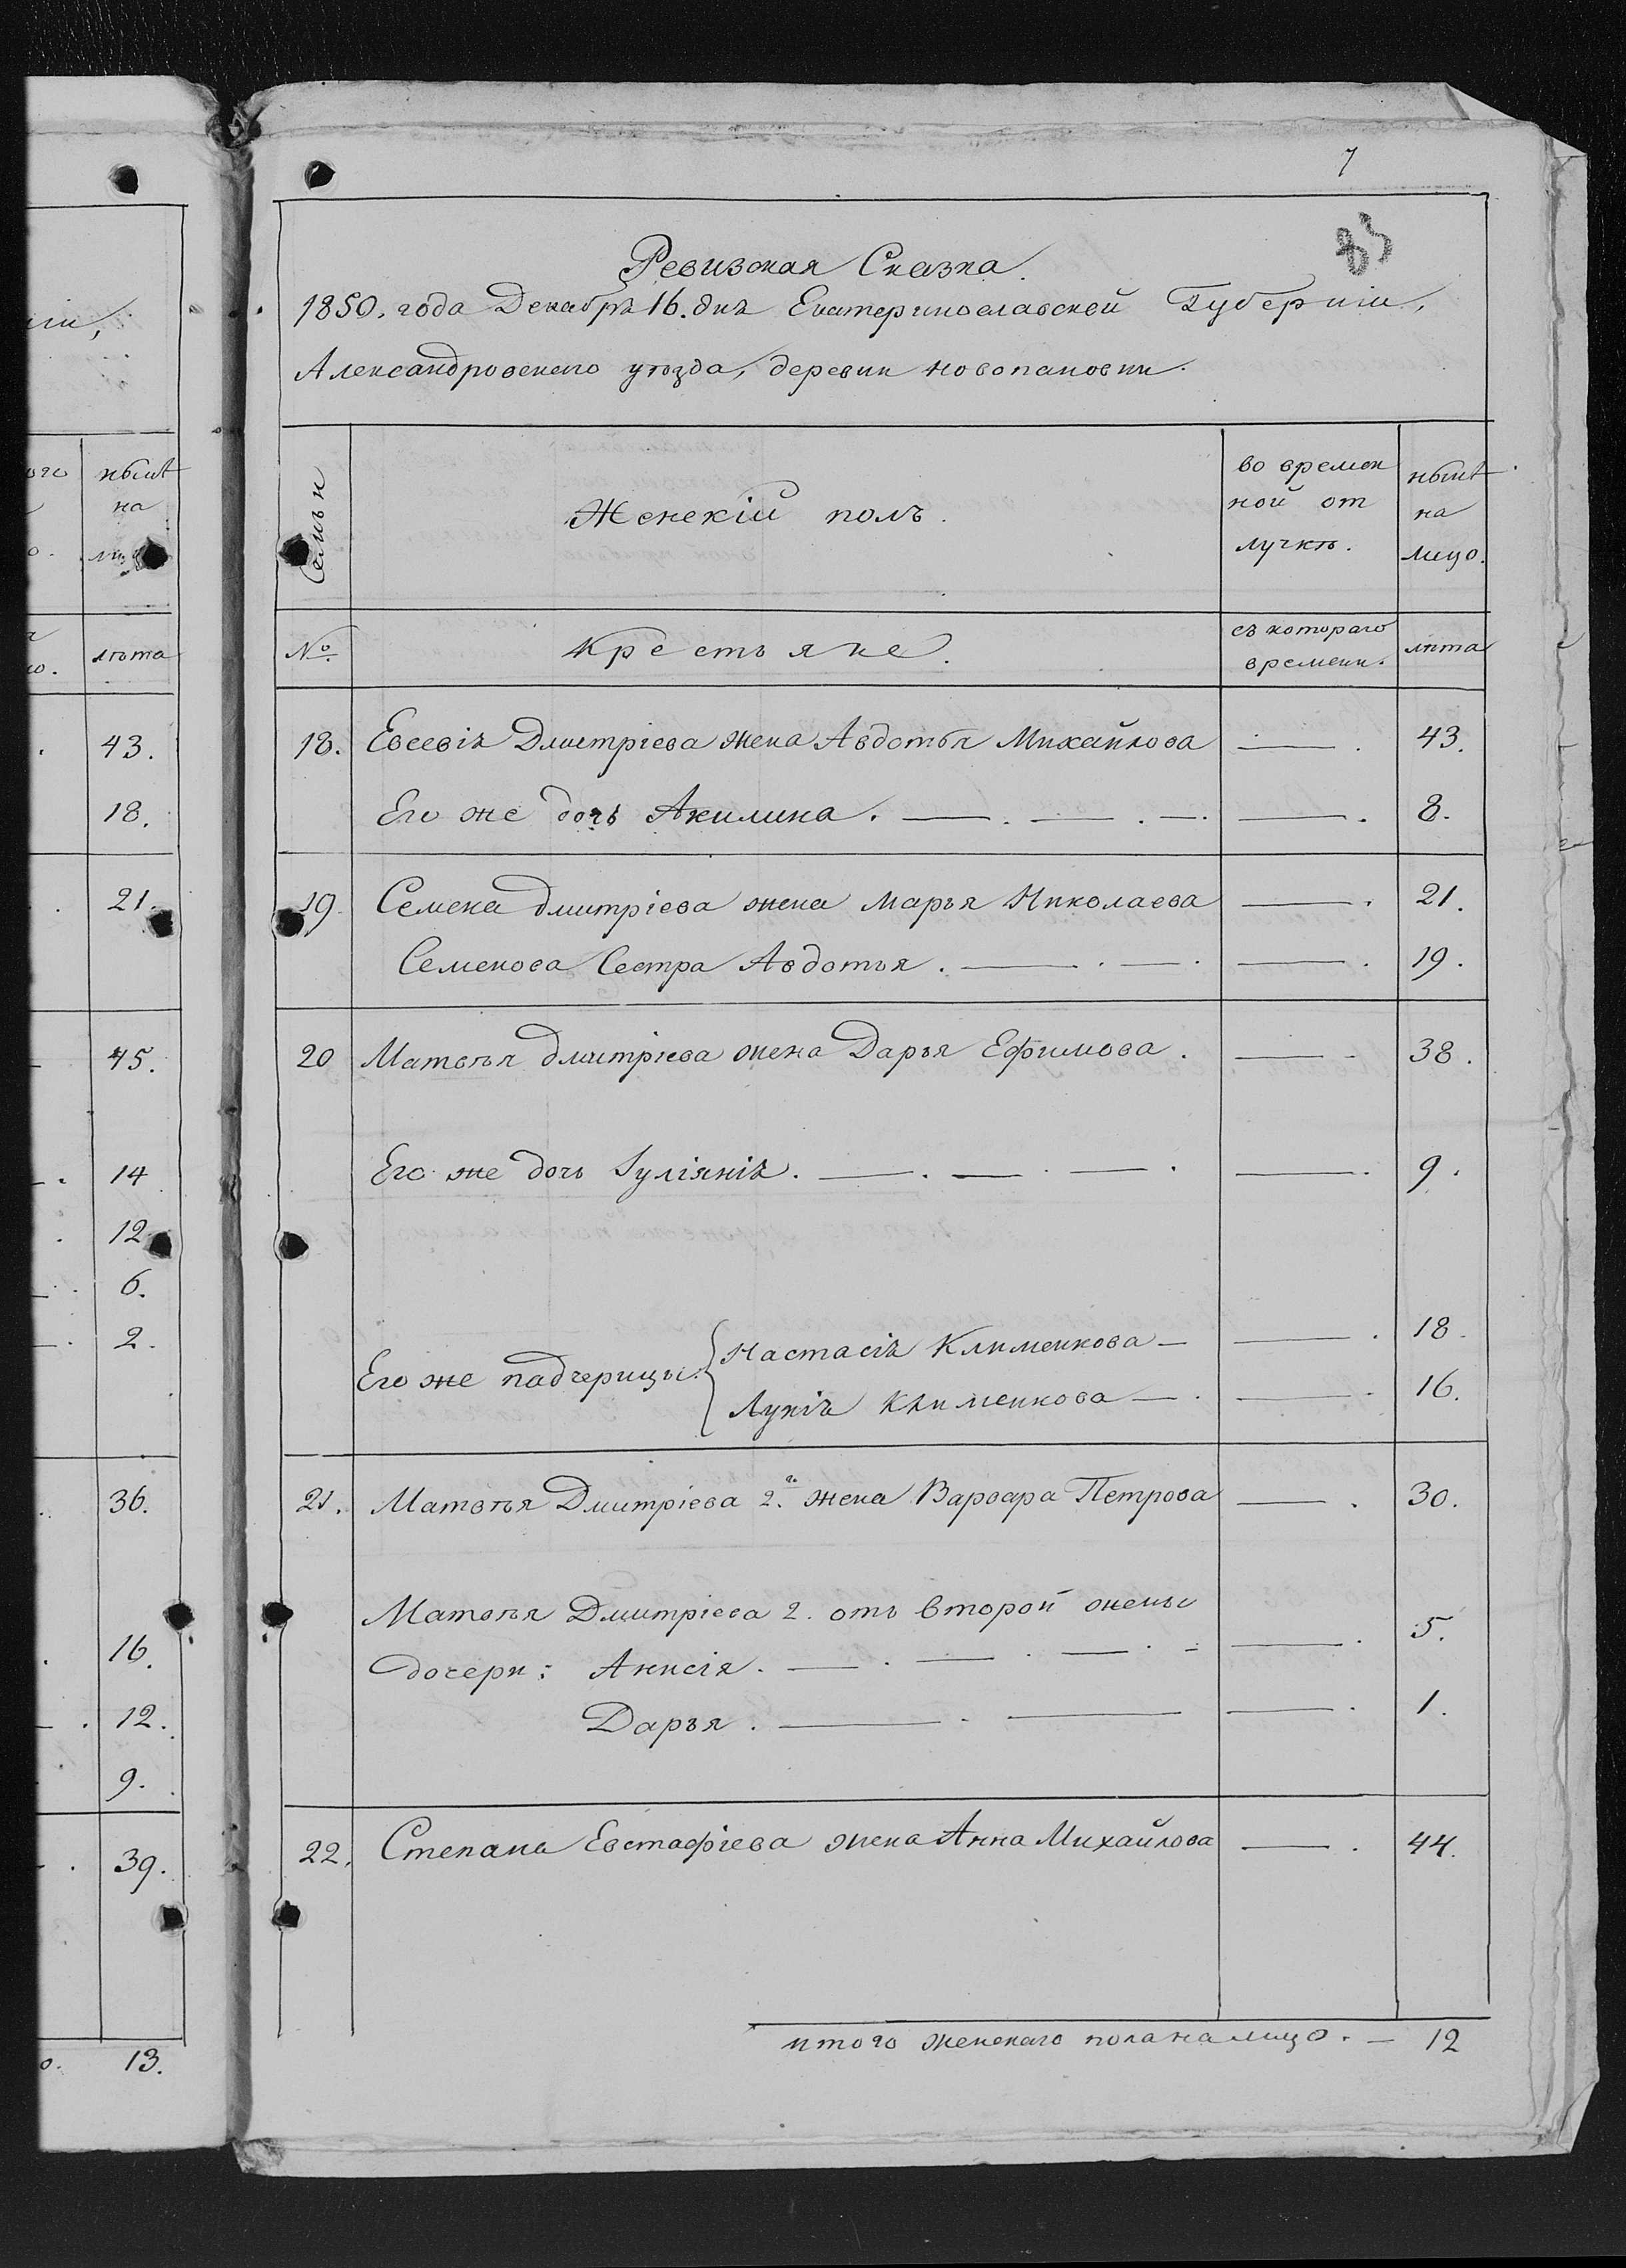 іи,
ого
ныне
на
лиц
лѣта
43.
18.
21.
45.
14
12
6.
2.
36.
16.
12.
9.
39.
о. 13.
7
83
Ревизская Сказка.
1850. года Декабря 16. дня Екатеринославской Губерніи,
Александровскаго уѣзда, деревни Новопановки.
Семьи
Женскій полъ.
во времен
ной от
лучкѣ.
нынѣ
на
лицо.
№
Крестьяне.
съ котораго
времени.
лѣта
18. Евсевія Дмитріева жена Авдотья Михайлова —. 43.
Его же дочь Акилина. —. —. —. —. 8.
19. Семена Дмитріева жена Марья Николаева —. 21.
Семенова Сестра Авдотья. —. —. —. 19.
20 Матвѣя Дмитріева жена Дарья Ефимова. —. 38.
Его же дочь Іуліянія. —. —. —. —. 9.
Его же падчерицы: { Настасія Клименкова — —. 18.
Лукія Клименкова —. —. 16.
21. Матвѣя Дмитріева 2.я жена Варвара Петрова —. 30.
Матвѣя Дмитріева 2. отъ второй жены
дочери: Анисія. —. —. —. - —. 5.
Дарья. —. — —. 1.
22. Степана Евстафіева жена Анна Михайлова —. 44.
итого женскаго пола на лицо. — 12